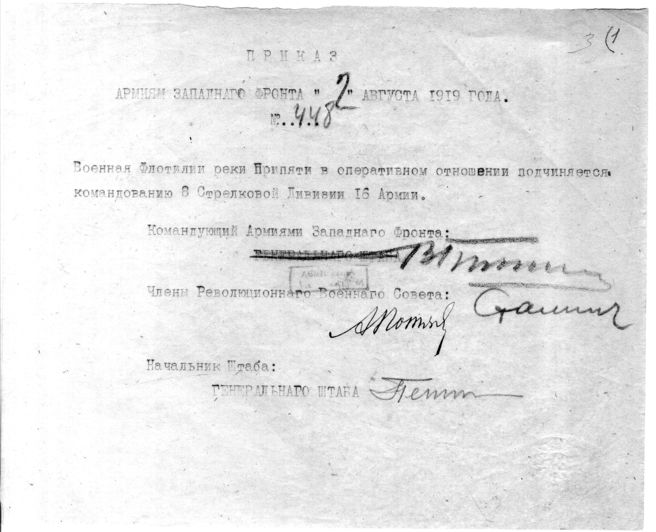 3 (1
ПРИКАЗ
АРМИЯМ ЗАПАДНАГО ФРОНТА " 2 " АВГУСТА 1919 ГОДА.
№..448
Военная Флотилии реки Припяти в оперативном отношении подчиняется
командованию 8 Стрелковой Дивизии 16 Армии.
Командующий Армиями Западнаго Фронта:
ГЕНЕРАЛЬНАГО ШТАБА
Члены Революционнаго Военнаго Совета:
Сталин
Начальник Штаба:
ГЕНЕРАЛЬНАГО ШТАБА Петин